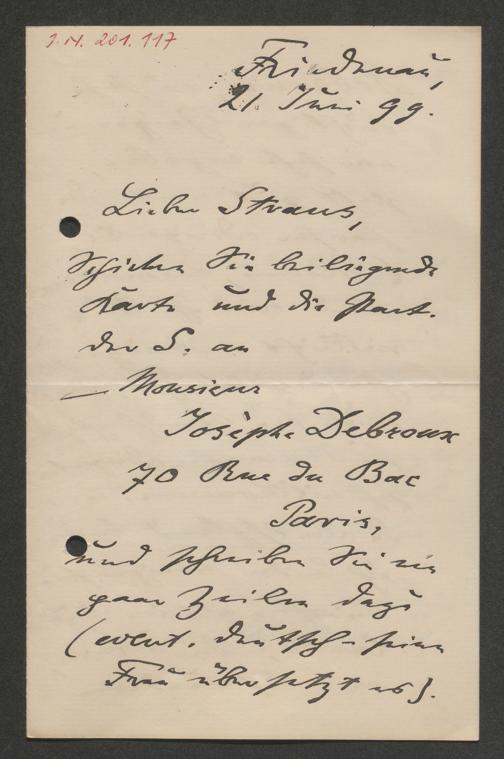 I.N. 201.117
Friedenau,
21. Juni 99.
Lieber Straus,
Schicken Sie beiliegende
Karte und die Part.
der S. an
— Monsieur
Josèphe Debroux
70 Rue du Bac
Paris,
und schreiben Sie ein
paar Zeilen dazu
(event. deutsch – seine
Frau übersetzt es).